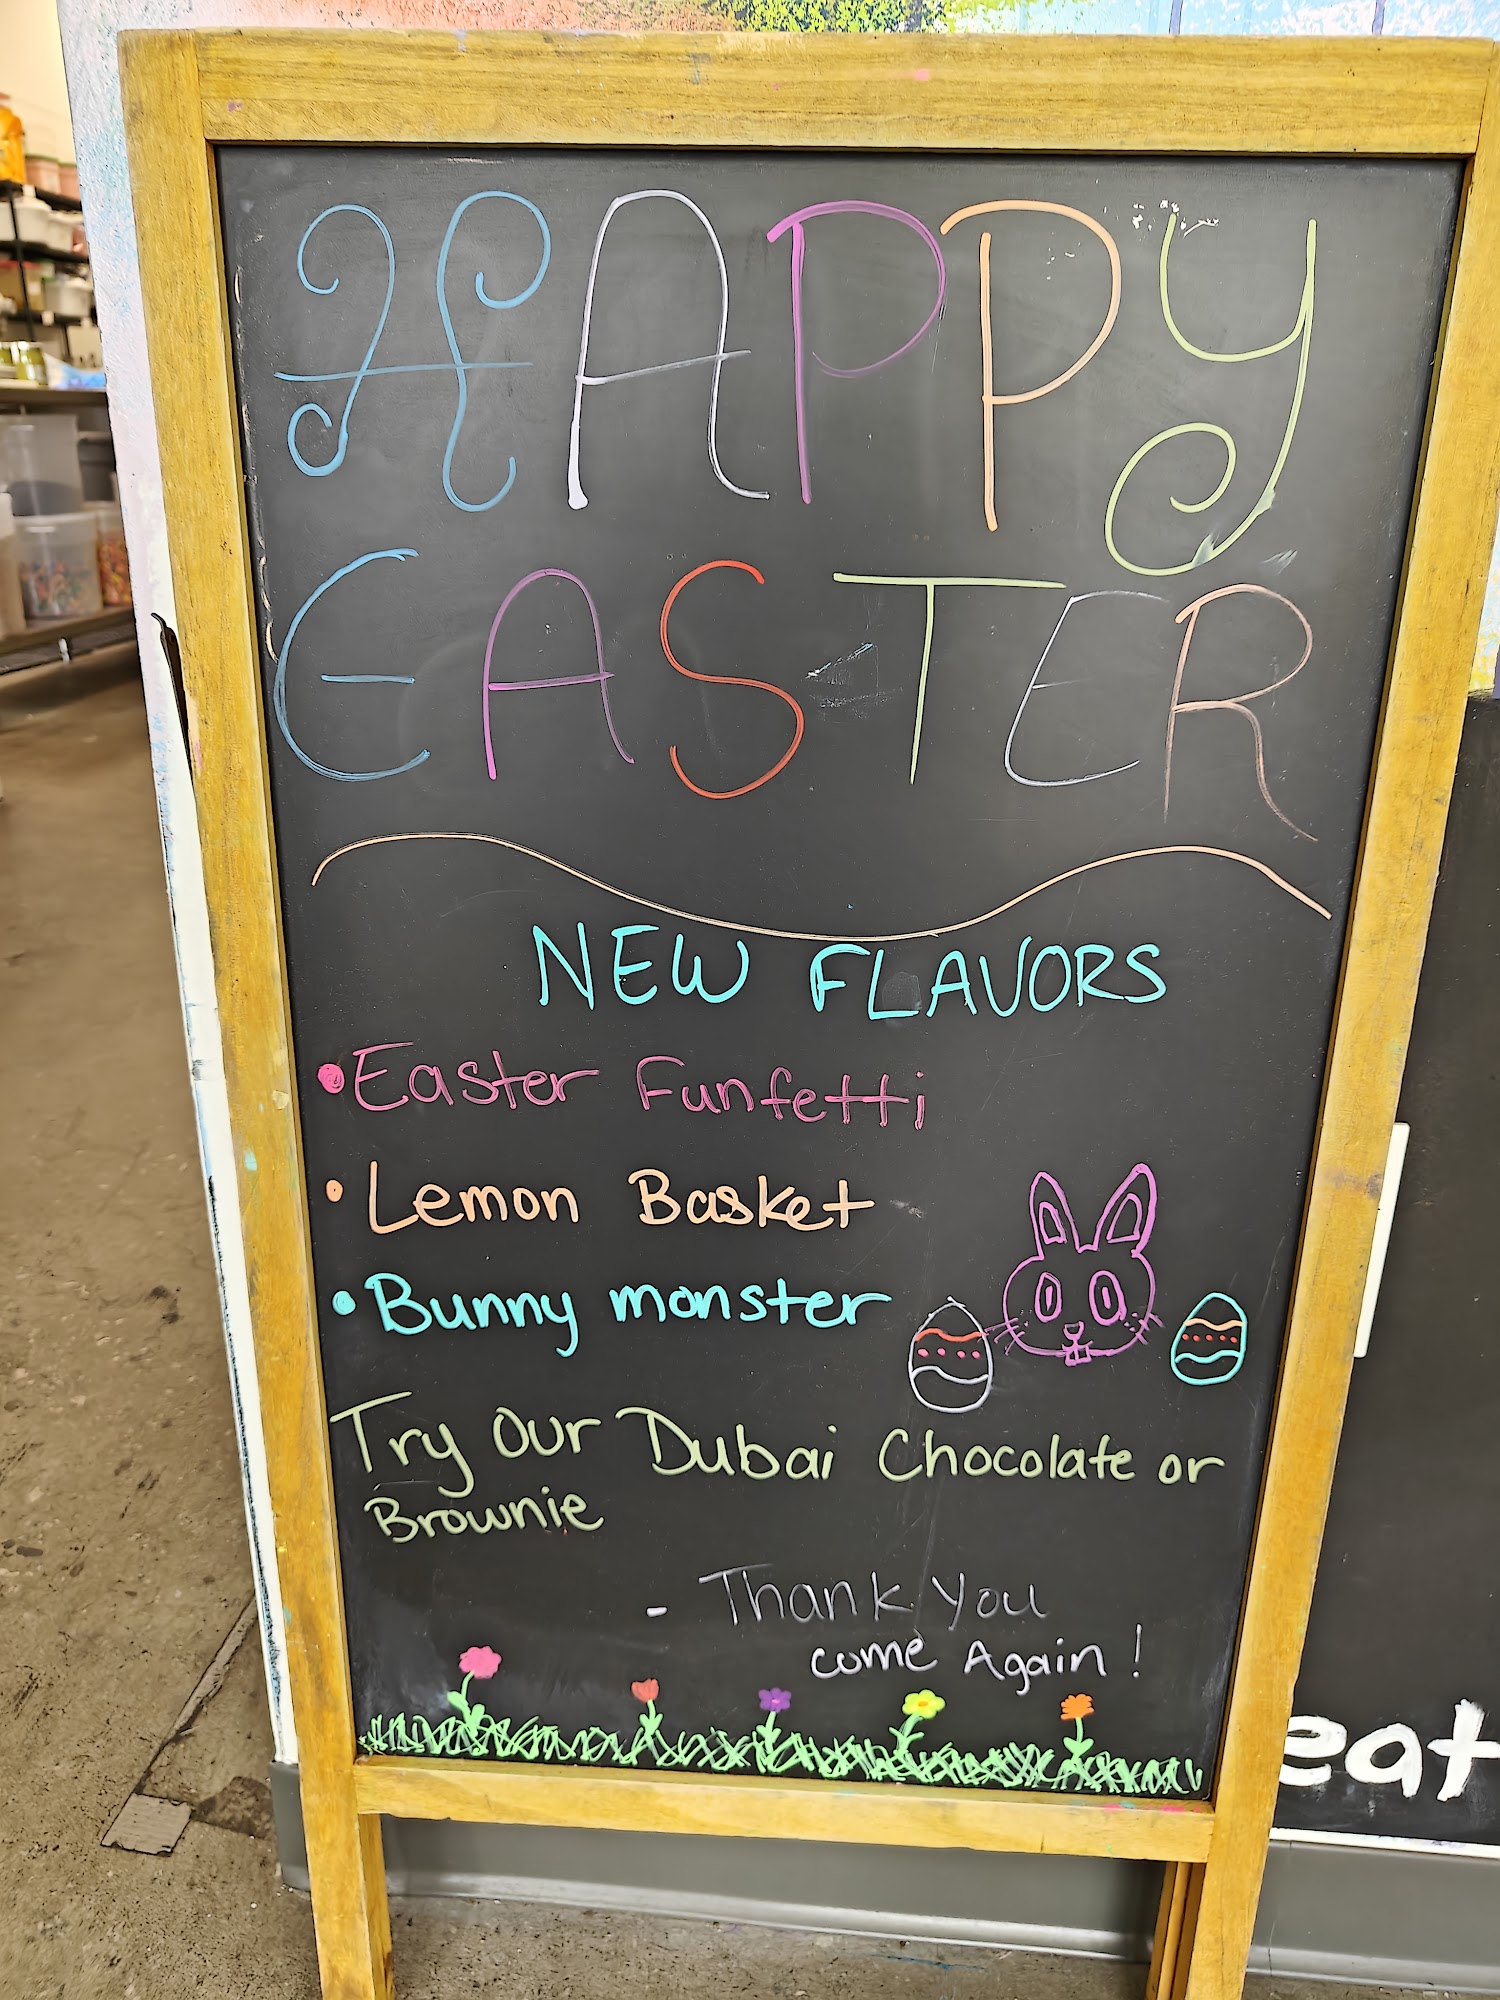 HAPPY
EASTER
NEW FLAVORS
• Easter Funfetti
• Lemon Basket
• Bunny monster
Try Our Dubai Chocolate or
Brownie
- Thank You
come Again!
eat